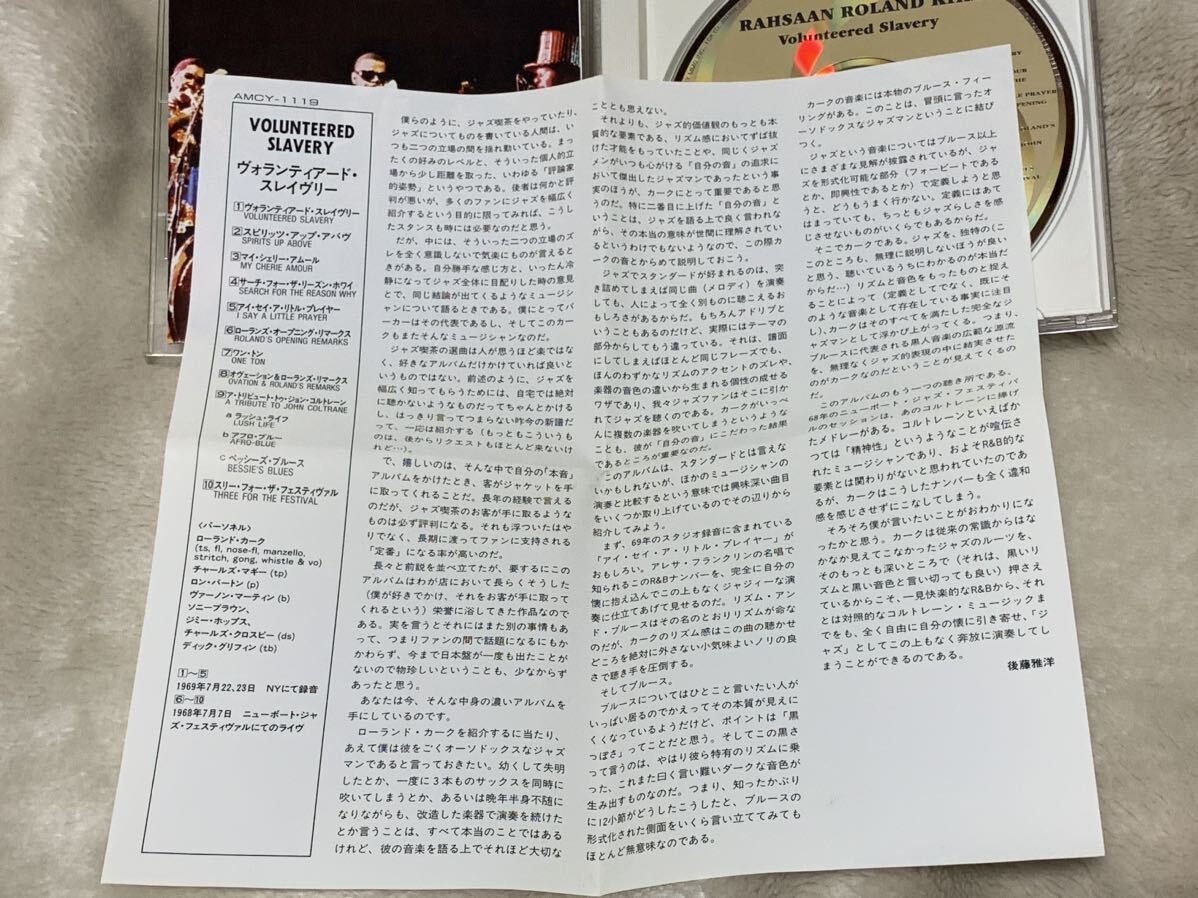 RAHSAAN ROLAND
Volunteered Slavery
AMCY-1119
VOLUNTEERED
SLAVERY
ヴォランティアード・
スレイヴリー
1 ヴォランティアード・スレイヴリー
VOLUNTEERED SLAVERY
2 スピリッツ・アップ・アバヴ
SPIRITS UP ABOVE
3 マイ・シェリー・アムール
MY CHERIE AMOUR
4 サーチ・フォー・ザ・リーズン・ホワイ
SEARCH FOR THE REASON WHY
5 アイ・セイ・ア・リトル・プレイヤー
I SAY A LITTLE PRAYER
6 ローランズ・オープニング・リマークス
ROLAND'S OPENING REMARKS
7 ワン・トン
ONE TON
8 オヴェーション&ローランズ・リマークス
OVATION & ROLAND'S REMARKS
9 ア・トリビュート・トゥ・ジョン・コルトレーン
A TRIBUTE TO JOHN COLTRANE
a ラッシュ・ライフ
LUSH LIFE
b アフロ・ブルー
AFRO-BLUE
c ベッシーズ・ブルース
BESSIE'S BLUES
10 スリー・フォー・ザ・フェスティヴァル
THREE FOR THE FESTIVAL
〈パーソネル〉
ローランド・カーク
(ts, fl, nose-fl, manzello,
stritch, gong, whistle & vo)
チャールズ・マギー (tp)
ロン・バートン (p)
ヴァーノン・マーティン (b)
ソニーブラウン、
ジミー・ホップス、
チャールズ・クロスビー (ds)
ディック・グリフィン (tb)
1〜5
1969年7月22、23日 NYにて録音
6〜10
1968年7月7日 ニューポート・ジャ
ズ・フェスティヴァルにてのライヴ
僕らのように、ジャズ喫茶をやっていたり、
ジャズについてものを書いている人間は、い
つも二つの立場の間を揺れ動いている。まっ
たくの好みのレベルと、そういった個人的立
場から少し距離を取った、いわゆる「評論家
的姿勢」というやつである。後者は何かと評
判が悪いが、多くのファンにジャズを幅広く
紹介するという目的に限ってみれば、こうし
たスタンスも時には必要なのだと思う。
だが、中には、そういった二つの立場のズ
レを全く意識しないで気楽にものが言えると
きがある。自分勝手な感じ方と、いったん冷
静になってジャズ全体に目配りした時の意見
とで、同じ結論が出てくるようなミュージシ
ャンについて語るときである。僕にとってパ
ーカーはその代表であるし、そしてこのカー
クもまたそんなミュージシャンなのだ。
ジャズ喫茶の選曲は人が思うほど楽ではな
く、好きなアルバムだけかけていれば良いと
いうものではない。前述のように、ジャズを
幅広く知ってもらうためには、自宅では絶対
に聴かないようなものだってちゃんとかける
し、はっきり言ってつまらない昨今の新譜だ
って、一応は紹介する(もっともこういうも
のは、後からリクエストもほとんど来ないけ
れど…)。
で、嬉しいのは、そんな中で自分の「本音」
アルバムをかけたとき、客がジャケットを手
に取ってくれることだ。長年の経験で言える
のだが、ジャズ喫茶のお客が手に取るような
ものは必ず評判になる。それも浮ついたはや
りでなく、長期に渡ってファンに支持される
「定番」になる率が高いのだ。
長々と前説を並べ立てたが、要するにこの
アルバムはわが店において長らくそうした
(僕が好きでかけ、それをお客が手に取って
くれるという)栄誉に浴してきた作品なので
ある。実を言うとそれにはまた別の事情もあ
って、つまりファンの間で話題になるにもか
かわらず、今まで日本盤が一度も出たことが
ないので物珍しいということも、少なからず
あったと思う。
あなたは今、そんな中身の濃いアルバムを
手にしているのです。
ローランド・カークを紹介するに当たり、
あえて僕は彼をごくオーソドックスなジャズ
マンであると言っておきたい。幼くして失明
したとか、一度に3本ものサックスを同時に
吹いてしまうとか、あるいは晩年半身不随に
なりながらも、改造した楽器で演奏を続けた
とか言うことは、すべて本当のことではある
けれど、彼の音楽を語る上でそれほど大切な
こととも思えない。
それよりも、ジャズ的価値観のもっとも本
質的な要素である、リズム感においてずば抜
けた才能をもっていたことや、同じくジャズ
メンがいつも心がける「自分の音」の追求に
おいて傑出したジャズマンであったという事
実のほうが、カークにとって重要であると思
うのだ。特に二番目に上げた「自分の音」と
いうことは、ジャズを語る上で良く言われな
がら、その本当の意味が世間に理解されてい
るというわけでもないようなので、この際カ
ークの音とからめて説明しておこう。
ジャズでスタンダードが好まれるのは、突
き詰めてしまえば同じ曲(メロディ)を演奏
しても、人によって全く別ものに聴こえるお
もしろさがあるからだ。もちろんアドリブと
いうこともあるのだけど、実際にはテーマの
部分からしてもう違っている。それは、譜面
にしてしまえばほとんど同じフレーズでも、
ほんのわずかなリズムのアクセントのズレや、
楽器の音色の違いから生まれる個性の成せる
ワザであり、我々ジャズファンはそこに引か
れてジャズを聴くのである。カークがいっぺ
んに複数の楽器を吹いてしまうというような
ことも、彼が「自分の音」にこだわった結果
であるところが重要なのだ。
このアルバムは、スタンダードとは言えな
いかもしれないが、ほかのミュージシャンの
演奏と比較するという意味では興味深い曲目
をいくつか取り上げているのでその辺りから
紹介してみよう。
まず、69年のスタジオ録音に含まれている
「アイ・セイ・ア・リトル・プレイヤー」が
おもしろい。アレサ・フランクリンの名唱で
知られるこのR&Bナンバーを、完全に自分の
懐に抱え込んでこの上もなくジャジィーな演
奏に仕立てあげて見せるのだ。リズム・アン
ド・ブルースはその名のとおりリズムが命な
のだが、カークのリズム感はこの曲の聴かせ
どころを絶対に外さない小気味よいノリの良
さで聴き手を圧倒する。
そしてブルース。
ブルースについてはひとこと言いたい人が
いっぱい居るのでかえってその本質が見えに
くくなっているようだけど、ポイントは「黒
っぽさ」ってことだと思う。そしてこの黒さ
って言うのは、やはり彼ら特有のリズムに乗
った、これまた曰く言い難いダークな音色が
生み出すものなのだ。つまり、知ったかぶり
に12小節がどうしたこうしたと、ブルースの
形式化された側面をいくら言い立ててみても
ほとんど無意味なのである。
カークの音楽には本物のブルース・フィー
リングがある。このことは、冒頭に言ったオ
ーソドックスなジャズマンということに結び
つく。
ジャズという音楽についてはブルース以上
にさまざまな見解が披露されているが、ジャ
ズを形式化可能な部分(フォービートである
とか、即興性であるとか)で定義しようと思
うと、どうもうまく行かない。定義にはあて
はまっていても、ちっともジャズらしさを感
じさせないものがいくらでもあるからだ。
そこでカークである。ジャズを、独特の(こ
このところも、無理に説明しないほうが良い
と思う、聴いているうちにわかるのが本当だ
からだ…)リズムと音色をもったものと捉え
ることによって(定義としてでなく、既にそ
のような音楽として存在している事実に注目
し)、カークはそのすべてを満たした完全なジ
ャズマンとして浮かび上がってくる。つまり、
ブルースに代表される黒人音楽の広範な源流
を、無理なくジャズ的表現の中に結実させた
のがカークなのだということが見えてくるの
だ。
このアルバムのもう一つの聴き所である、
68年のニューポート・ジャズ・フェスティバ
ルのセッションは、あのコルトレーンに捧げ
たメドレーがある。コルトレーンといえばか
つては「精神性」というようなことが喧伝さ
れたミュージシャンであり、およそR&B的な
要素とは関わりがないと思われていたのであ
るが、カークはこうしたナンバーも全く違和
感を感じさせずにこなしてしまう。
そろそろ僕が言いたいことがおわかりにな
ったかと思う。カークは従来の常識からはな
かなか見えてこなかったジャズのルーツを、
そのもっとも深いところで(それは、黒いリ
ズムと黒い音色と言い切っても良い)押さえ
ているからこそ、一見快楽的なR&Bから、それ
とは対照的なコルトレーン・ミュージックま
でをも、全く自由に自分の懐に引き寄せ、「ジ
ャズ」としてこの上もなく奔放に演奏してし
まうことができるのである。
後藤雅洋